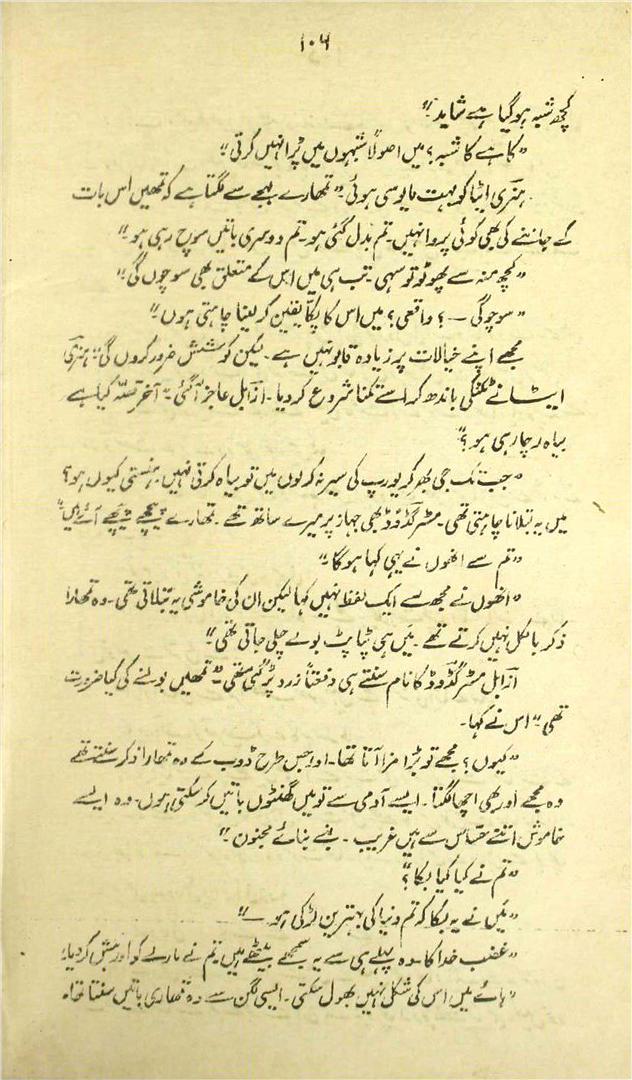 ۱۰۶
کچھ شبہ ہو گیا ہے شاید۔"
"کاہے کا شبہ؟ میں اصولاً شبہوں میں پڑا نہیں کرتی۔"
ہنری ایٹا کو بہت مایوسی ہوئی۔ "تمھارے لہجے سے لگتا ہے کہ تمھیں اس بات
کے جاننے کی بھی کوئی پروا نہیں۔ تم بدل گئی ہو۔ تم دوسری باتیں سوچ رہی ہو۔"
"کچھ منہ سے پھوٹو تو سہی۔ تب ہی میں اس کے متعلق بھی سوچوں گی۔"
"سوچو گی ــ؟ واقعی؟ میں اس کا پکا یقین کر لینا چاہتی ہوں۔"
مجھے اپنے خیالات پر زیادہ قابو نہیں ہے۔ لیکن کوشش ضرور کروں گی۔" ہنری
ایٹا نے ٹکٹکی باندھ کر اسے تکنا شروع کر دیا۔ ازابل عاجز آ گئی۔ "آخر قصّہ کیا ہے
بیاہ رچا رہی ہو؟"
"جب تک جی بھر کر یورپ کی سیر نہ کر لوں میں تو بیاہ کرتی نہیں۔ ہنستی کیوں ہو؟
میں یہ بتلانا چاہتی تھی۔ مسٹر گڈوڈ بھی جہاز پر میرے ساتھ تھے۔ تمھارے پیچھے پیچھے آئے ہیں"
"تم سے انھوں نے یہی کہا ہوگا۔"
"انھوں نے مجھ سے ایک لفظ نہیں کہا لیکن ان کی خاموشی یہ بتلاتی تھی۔ وہ تمھارا
ذکر بالکل نہیں کرتے تھے۔ میں ہی ٹپاٹپ بولے چلی جاتی تھی۔"
ازابل مسٹر گڈوڈ کا نام سنتے ہی دفعتاً زرد پڑ گئی تھی۔ "تمھیں بولنے کی کیا ضرورت
تھی۔" اس نے کہا۔
"کیوں؟ مجھے تو بڑا مزا آتا تھا۔ اور جس طرح ڈوب کے وہ تمھارا ذکر سنتے تھے
وہ مجھے اور بھی اچھا لگتا۔ ایسے آدمی سے تو میں گھنٹوں باتیں کر سکتی ہوں۔ وہ ایسے
خاموش اتنے حساس سے ہیں غریب۔ بنے بنائے مجنون۔"
"تم نے کیا کیا بکا؟"
"میں نے یہ بکا کہ تم دنیا کی بہترین لڑکی ہو ــ"
"غضب خدا کا۔ وہ پہلے ہی سے یہ سمجھے بیٹھے ہیں۔ تم نے پارے کو اور مشتعل کر دیا۔
"ہائے میں اس کی شکل نہیں بھول سکتی۔ ایسی لگن سے وہ تمھاری باتیں سنتا تھا۔